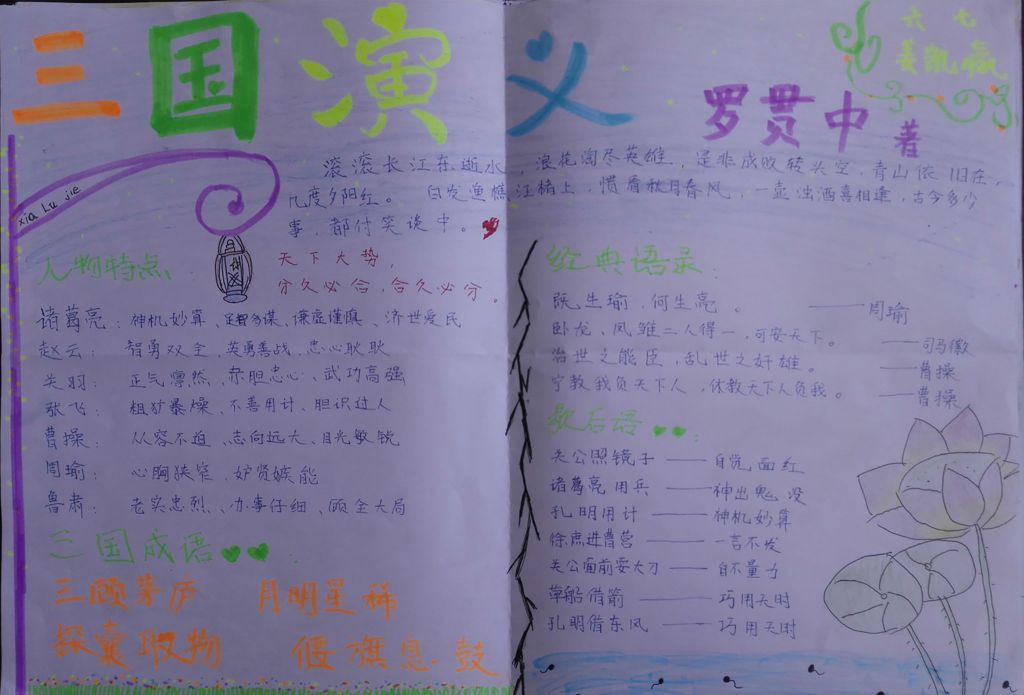 三国演义
罗贯中 著
六 七
姜凯瀛
xia Lu jie
滚滚长江东逝水，浪花淘尽英雄，是非成败转头空，青山依旧在，
几度夕阳红。 白发渔樵江楮上，惯看秋月春风，一壶浊酒喜相逢，古今多少
事，都付笑谈中。
天下大势，
分久必合，合久必分。
人物特点：
诸葛亮：神机妙算、足智多谋、谦虚谨慎、济世爱民
赵云：智勇双全、英勇善战、忠心耿耿
关羽：正气凛然、赤胆忠心、武功高强
张飞：粗犷暴燥、不善用计、胆识过人
曹操：从容不迫、志向远大、目光敏锐
周瑜：心胸狭窄、妒贤嫉能
鲁肃：老实忠烈、办事仔细、顾全大局
三国成语：
三顾茅庐 月明星稀
探囊取物 偃旗息鼓
经典语录：
既生瑜，何生亮。——周瑜
卧龙，凤雏二人得一，可安天下。——司马徽
治世之能臣，乱世之奸雄。——曹操
宁教我负天下人，休教天下人负我。——曹操
歇后语：
关公照镜子——自觉面红
诸葛亮用兵——神出鬼没
孔明用计——神机妙算
徐庶进曹营——一言不发
关公面前耍大刀——自不量力
草船借箭——巧用天时
孔明借东风——巧用天时